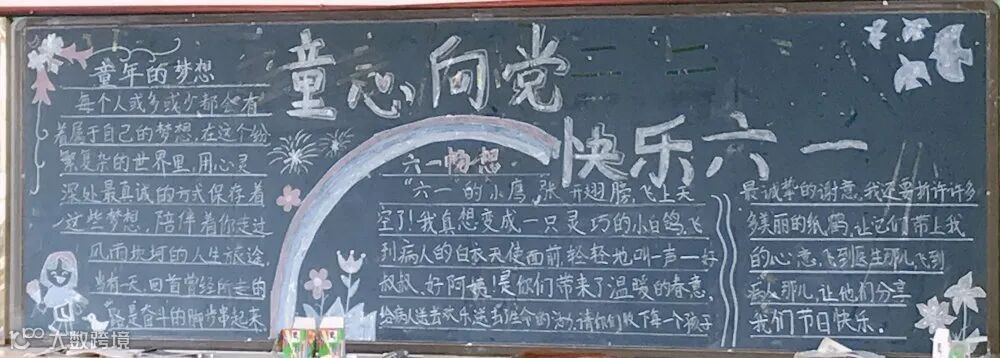 童心向党
快乐六一
童年的梦想
每个人或多或少都会有
着属于自己的梦想,在这个纷
繁复杂的世界里,用心灵
深处最真诚的方式保存着
这些梦想,陪伴着你走过
风雨坎坷的人生旅途,
当有天,回首曾经所走的
路是奋斗的脚步串起来
六一畅想
“六一”的小鹰,张开翅膀,飞上天
空了!我真想变成一只灵巧的小白鸽,飞
到病人的白衣天使面前,轻轻地叫一声一好
叔叔,好阿姨!是你们带来了温暖的春意,
给病人送去欢乐送去生命的活力,请你们收下每一个孩子
最诚挚的谢意,我还要折许许多
多美丽的纸鹤,让它们带上我
的心意,飞到医生那儿飞到
病人那儿,让他们分享
我们节日快乐.
大数跨境